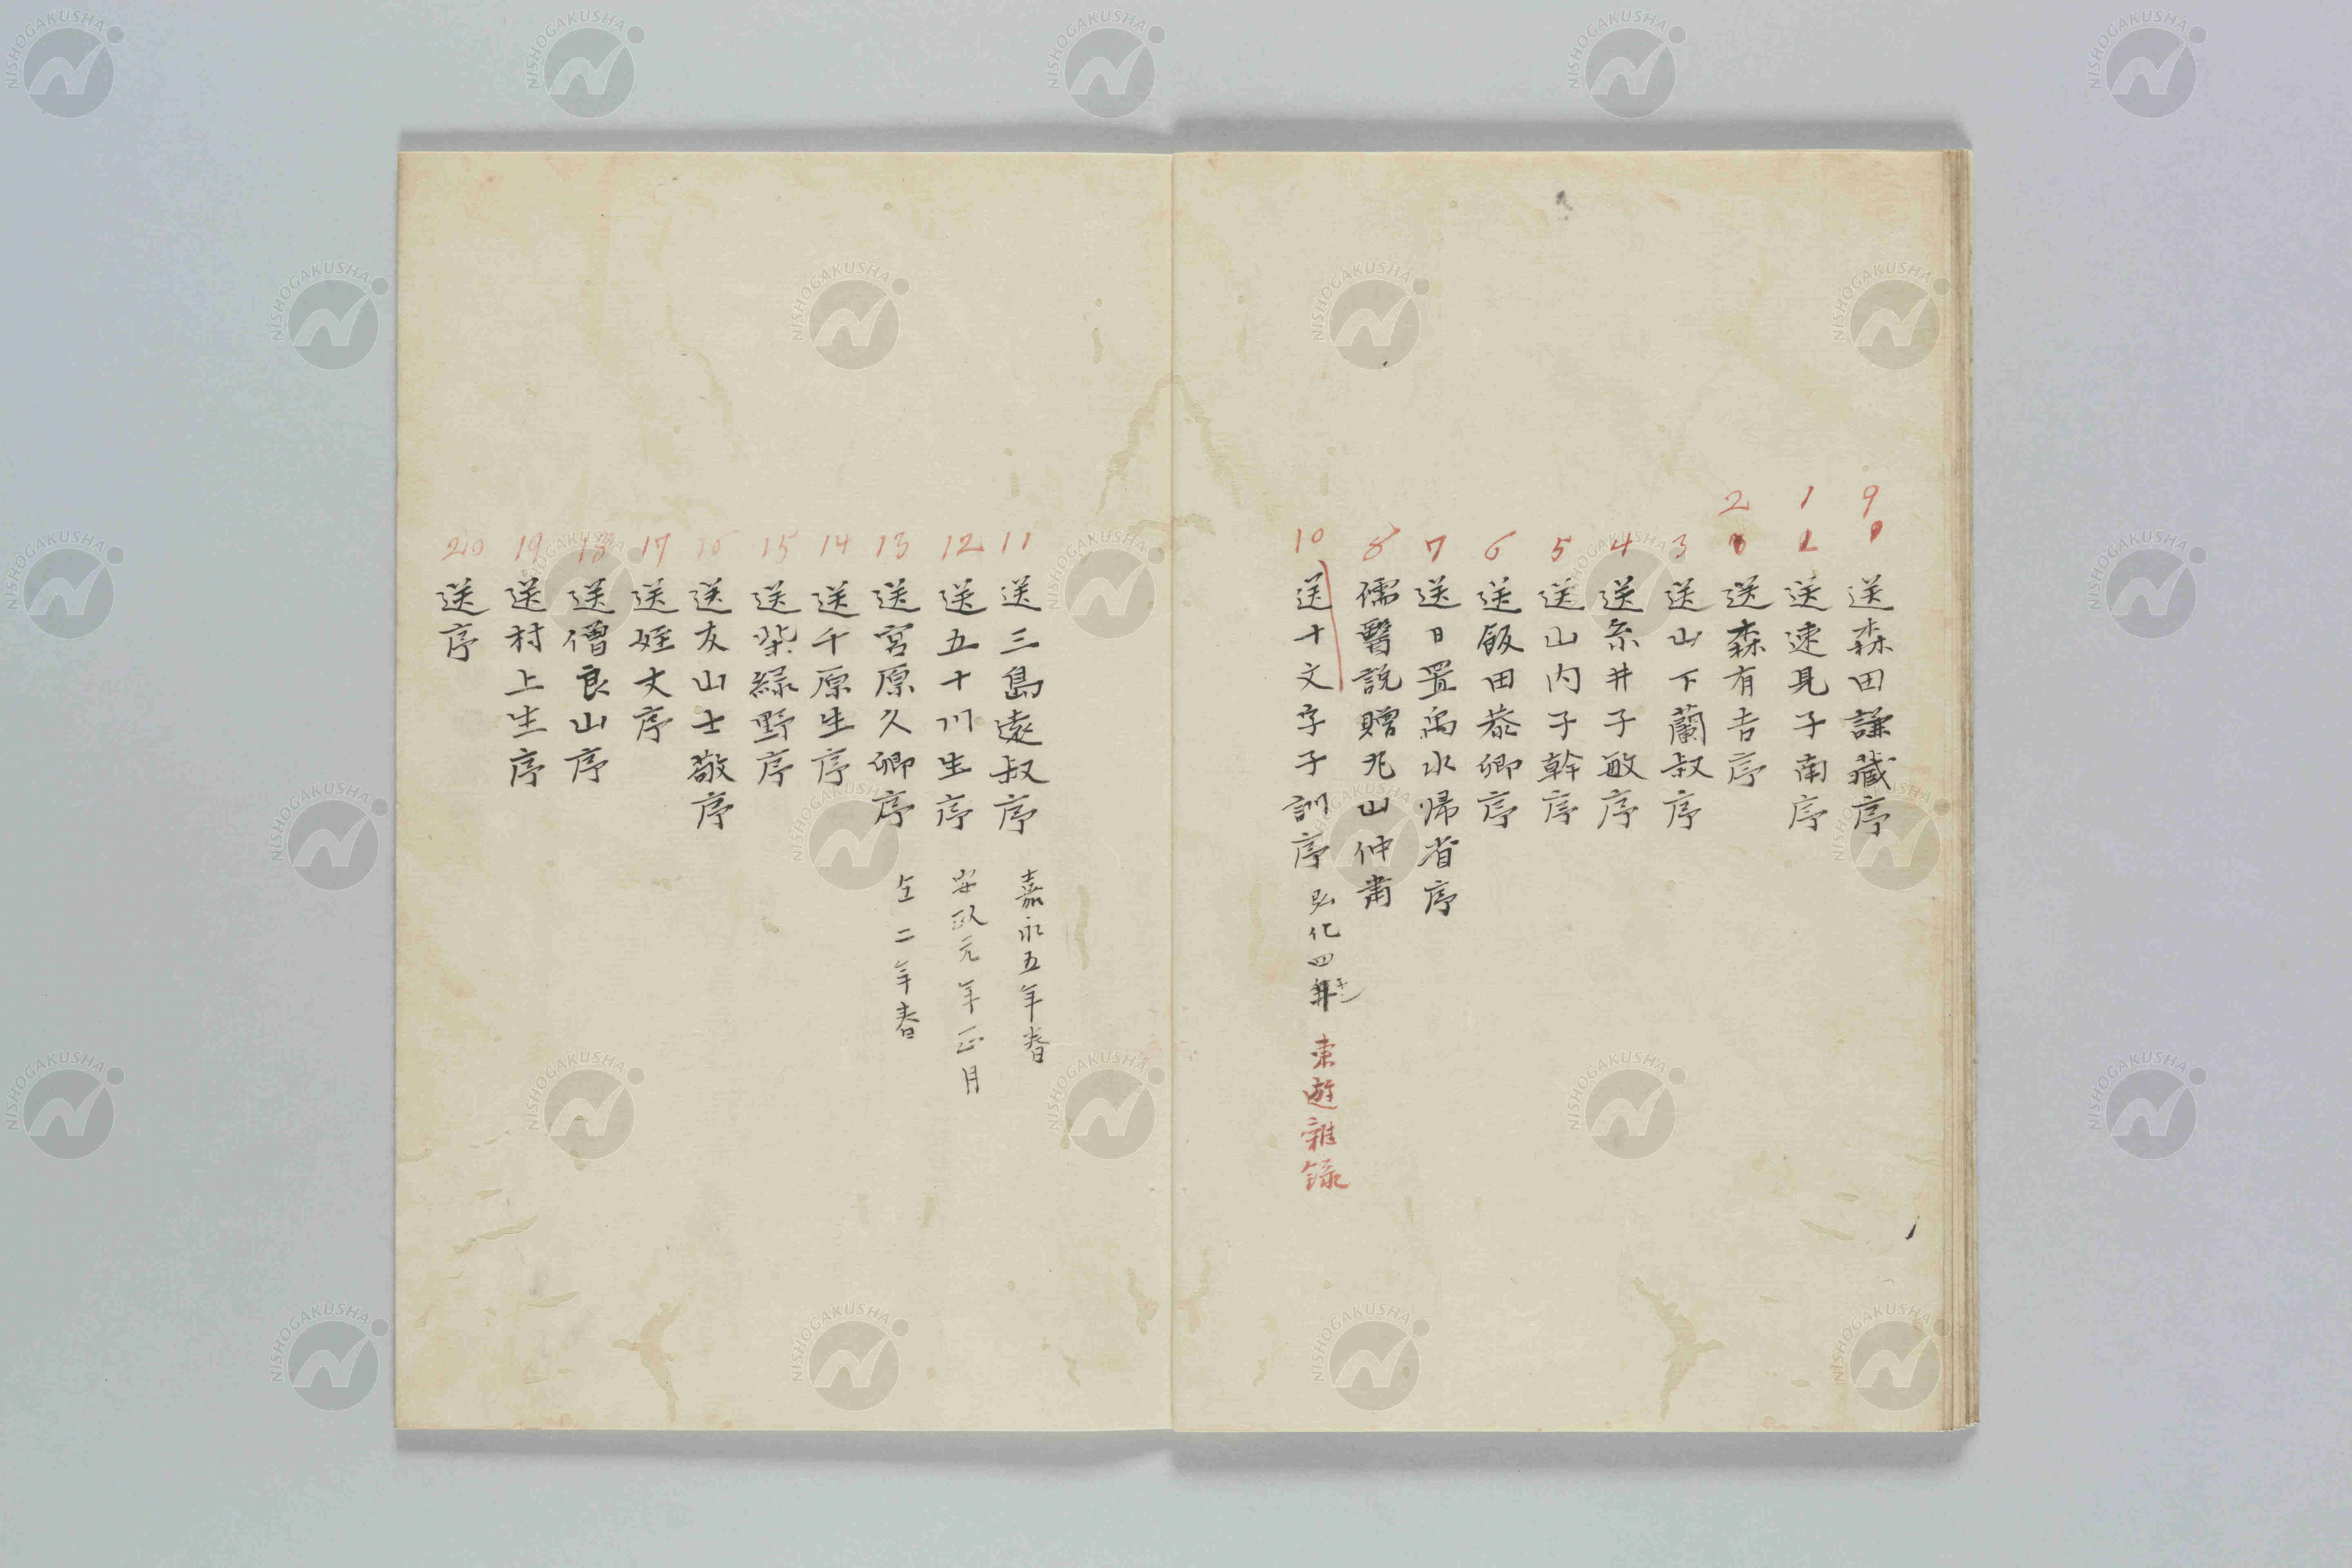 9 送森田謙藏序
1 送速見子南序
2 送森有吉序
3 送山下蘭叔序
4 送糸井子敏序
5 送山内子幹序
6 送飯田恭卿序
7 送日置禹水帰省序
8 儒醫説贈丹山仲肅
10 送十文字子訓序 弘化四年 東遊雜録
11 送三島遠叔序 嘉永五年春
12 送五十川生序 安政元年正月
13 送宮原久卿序 仝二年春
14 送千原生序
15 送柴緑野序
16 送友山士敬序
17 送姪丈序
18 送僧良山序
19 送村上生序
20 送序
NISHOGAKUSHA